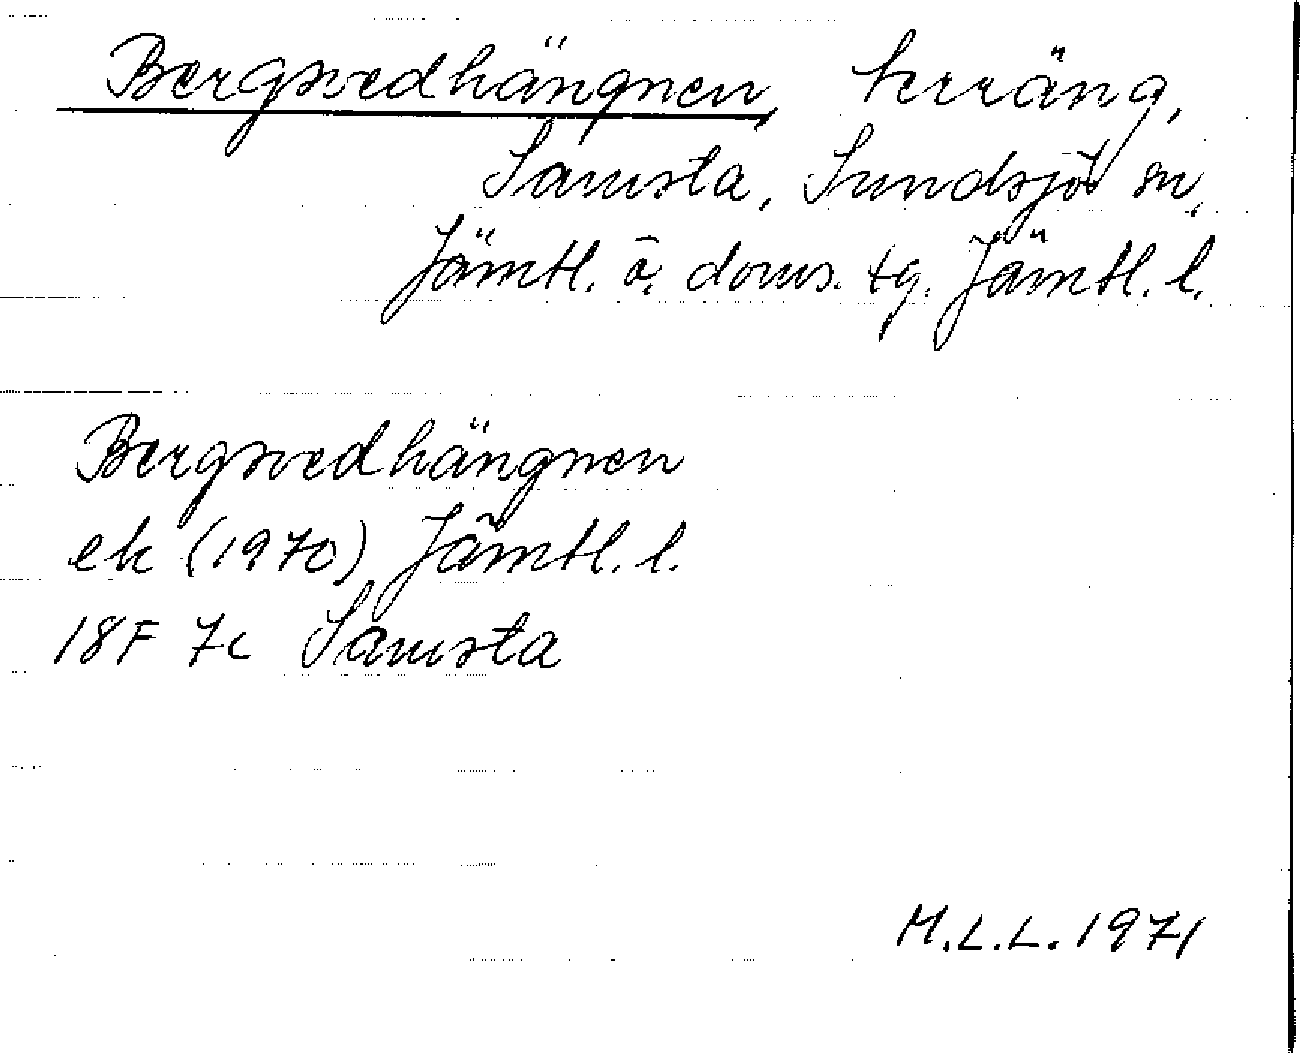 Bergsvedhängnen, terräng,
Samsta, Sundsjö sn,
Jämtl. ö. doms. tg. Jämtl. l.
Bergsvedhängnen
ek (1970) Jämtl. l.
18F 7c Samsta
M.L.L. 1971